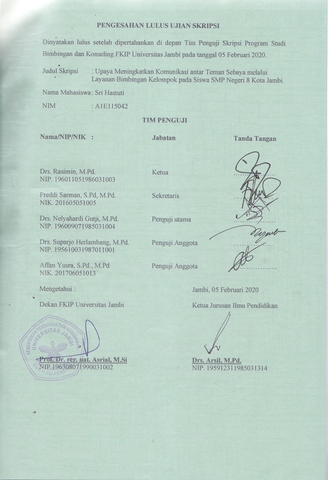 PENGESAHAN LULUS UJIAN SKRIPSI
Dinyatakan lulus setelah dipertahankan di depan Tim Penguji Skripsi Program Studi
Bimbingan dan Konseling FKIP Universitas Jambi pada tanggal 05 Februari 2020.
Judul Skripsi : Upaya Meningkatkan Komunikasi antar Teman Sebaya melalui
Layanan Bimbingan Kelompok pada Siswa SMP Negeri 8 Kota Jambi.
Nama Mahasiswa: Sri Hastuti
NIM : A1E115042
TIM PENGUJI
Nama/NIP/NIK : Jabatan Tanda Tangan
Drs. Rasimin, M.Pd. Ketua
NIP. 196011051986031003
Freddi Sarman, S.Pd, M.Pd. Sekretaris
NIK. 201605051005
Drs. Nelyahardi Gutji, M.Pd. Penguji utama
NIP. 196009071985031004
Drs. Suparjo Herlambang, M.Pd Penguji Anggota
NIP. 195610031987101001
Affan Yusra, S.Pd., M.Pd Penguji Anggota
NIK. 201706051013
Mengetahui : Jambi, 05 Februari 2020
Dekan FKIP Universitas Jambi Ketua Jurusan Ilmu Pendidikan
Prof. Dr. rer. nat. Asrial, M.Si Drs. Arsil, M.Pd.
NIP. 196308071990031002 NIP. 195912311985031314